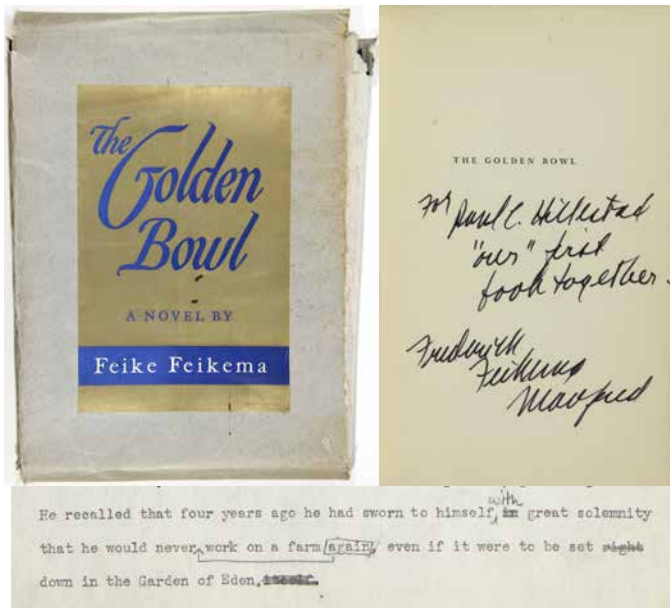 The
Golden
Bowl
A NOVEL BY
Feike Feikema
THE GOLDEN BOWL
For Paul C. Hillestad
"our" first
book together.
Frederick
Feikema
Manfred
with
He recalled that four years ago he had sworn to himself, in great solemnity
that he would never work on a farm again, even if it were to be set right
down in the Garden of Eden, itself.